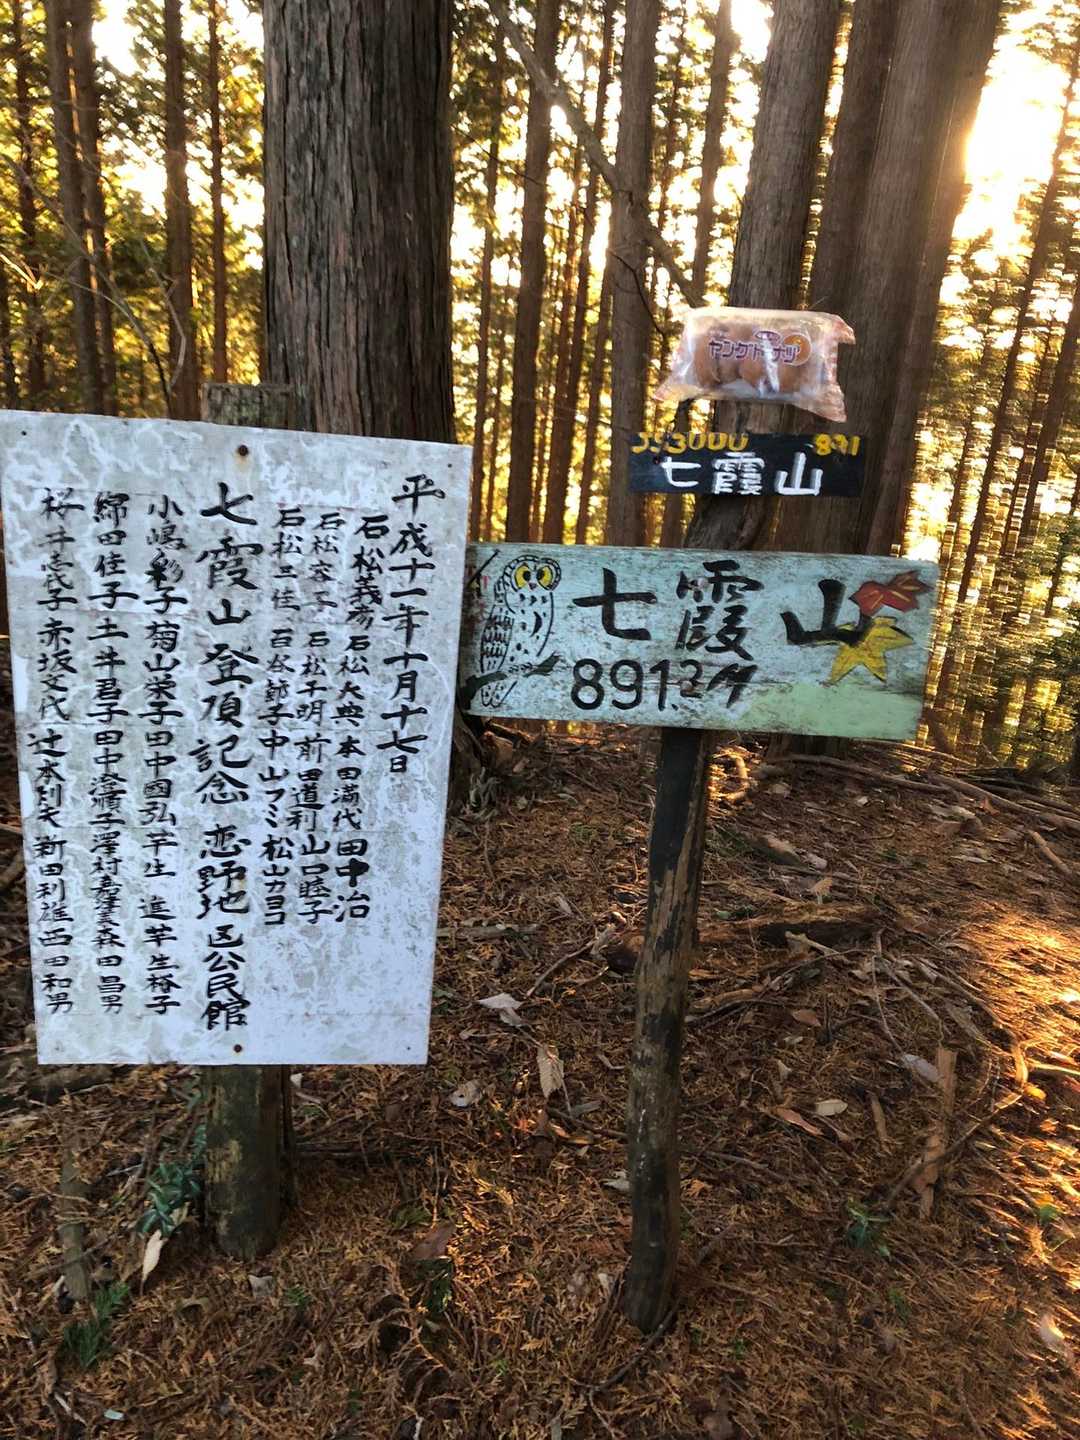 平成十一年十月十七日
石松義彦 石松大典 本田満代 田中治
石松容子 石松千明 前田道利 山口睦子
石松二佳 百谷節子 中山フミ 松山カヨコ
七霞山登頂記念 恋野地区公民館
小嶋彩子 菊山栄子 田中國弘 芋生 進 芋生裕子
綿田佳子 土井君子 田中澄子 澤村 森田昌男
桜井 赤坂文代 辻本 新田利雄 西田和男
ヤングドーナツ
JS3000 891
七霞山
七霞山
891.2M